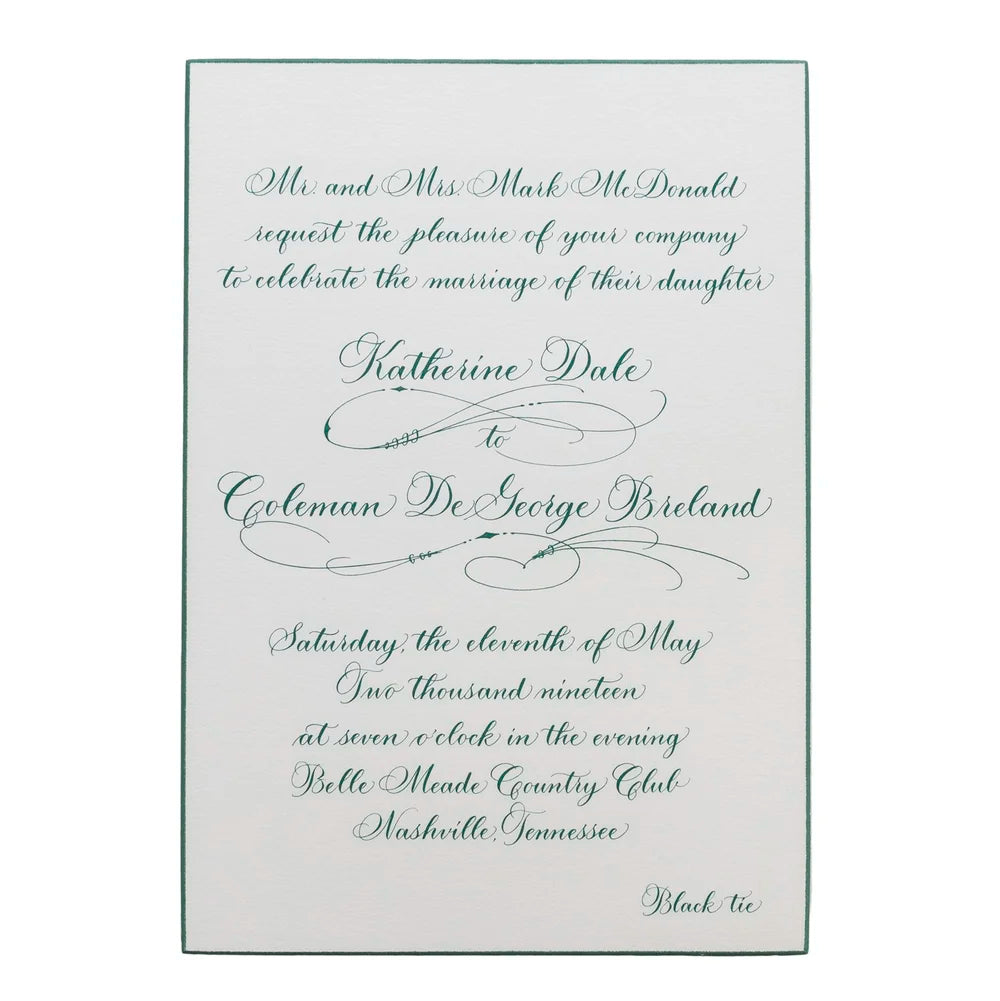 Mr. and Mrs. Mark McDonald
request the pleasure of your company
to celebrate the marriage of their daughter
Katherine Dale
to
Coleman De George Breland
Saturday, the eleventh of May
Two thousand nineteen
at seven o'clock in the evening
Belle Meade Country Club
Nashville, Tennessee
Black tie